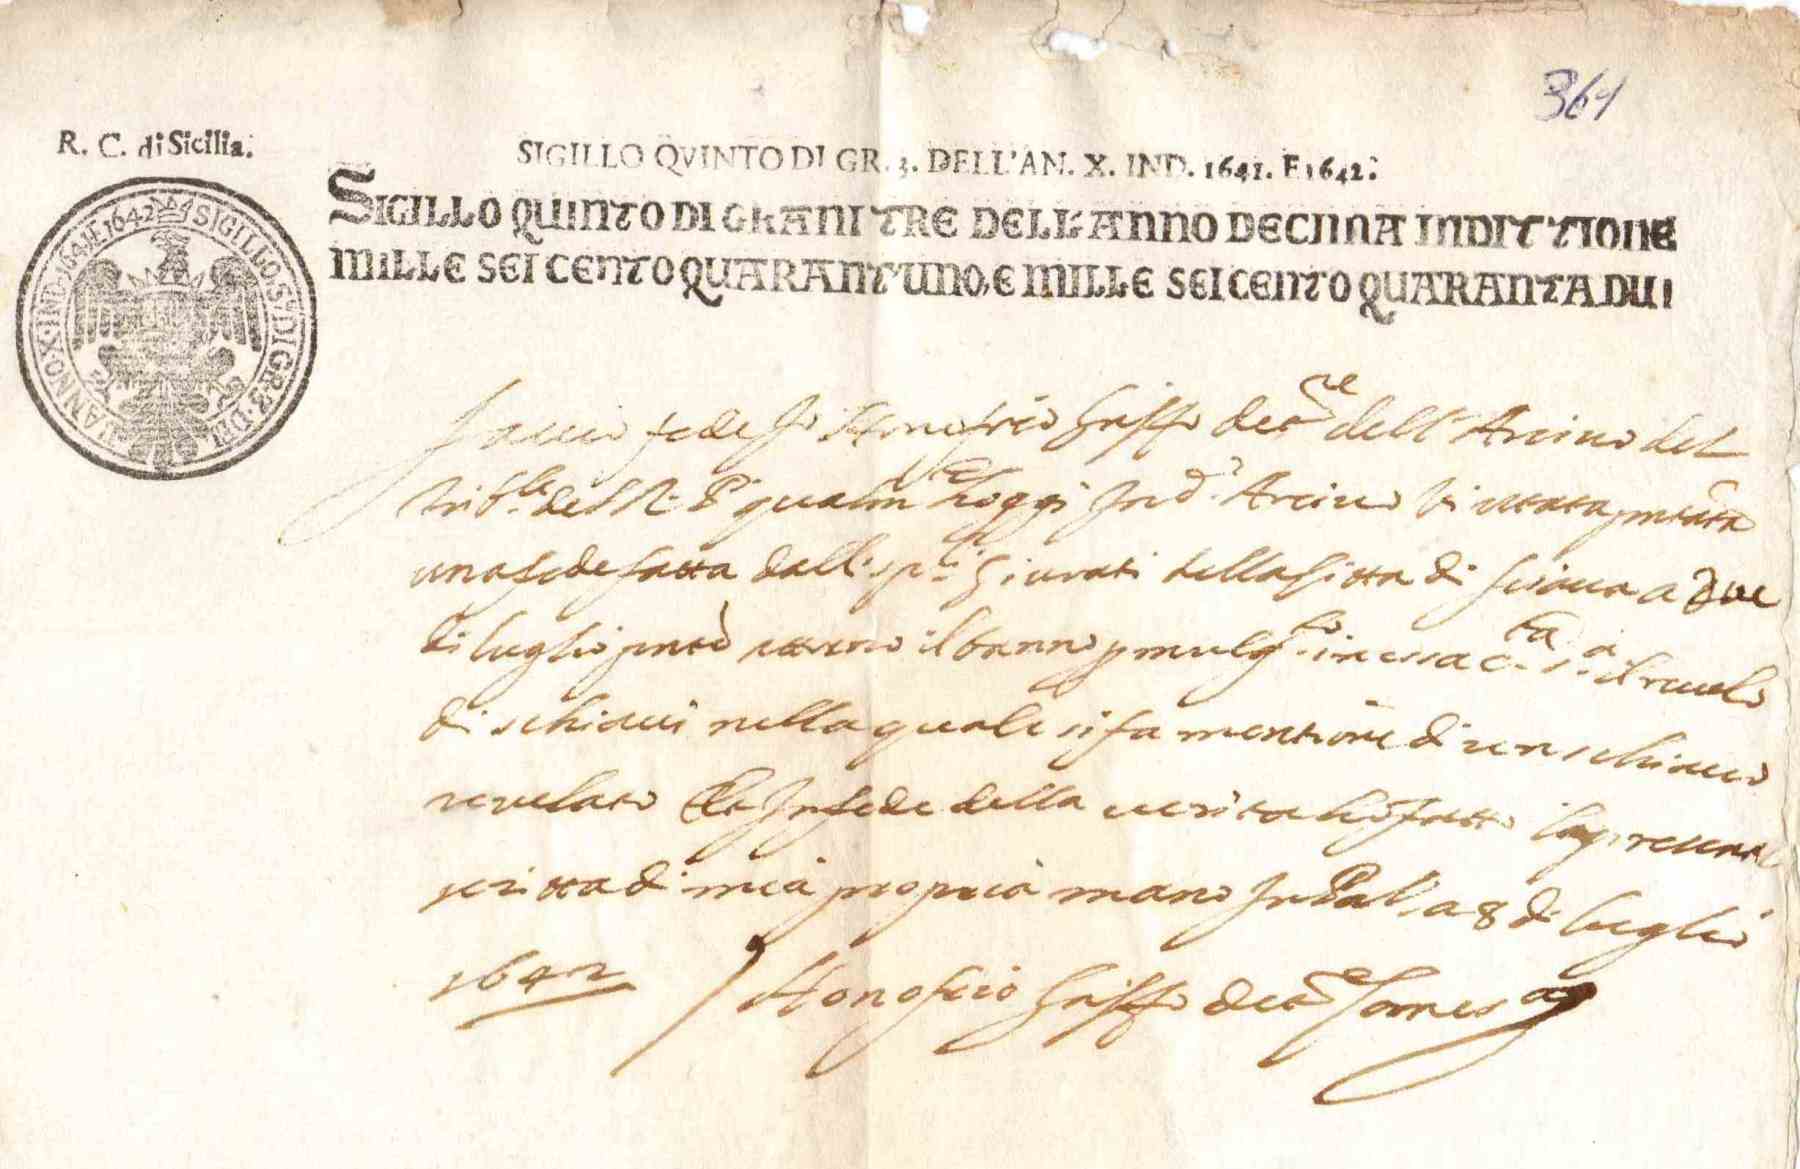 364
R. C. di Sicilia.
SIGILLO QVINTO DI GR. 3. DELL'AN. X. IND. 1641. E 1642.
SIGILLO QUINTO DI GRANI TRE DELL'ANNO DECIMA INDITTIONE
MILLE SEI CENTO QUARANT'UNO, E MILLE SEI CENTO QUARANTADUI
SIGILLO 5º DI GR 3 DEL ANNO X IND 1641 E 1642
faccio fede Io Honofrio Griffo dell' Arcivo del
Trib.le del R. P. qualm.te hoggi In d.o Arcivo è stata
una fede fatta dalli sp.li Giurati della Citta di Sciacca a due
di luglio il banno in essa c.ta il revelo
di schiavi nella quale si fa mentione di un schiavo
revelato Et In fede della verita hò fatto la presente
scritta di mia propria mano In Pal. a 8 di luglio
1642 Honofrio Griffo